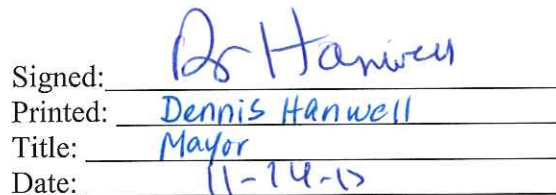 Signed: Hanwell
Printed: Dennis Hanwell
Title: Mayor
Date: